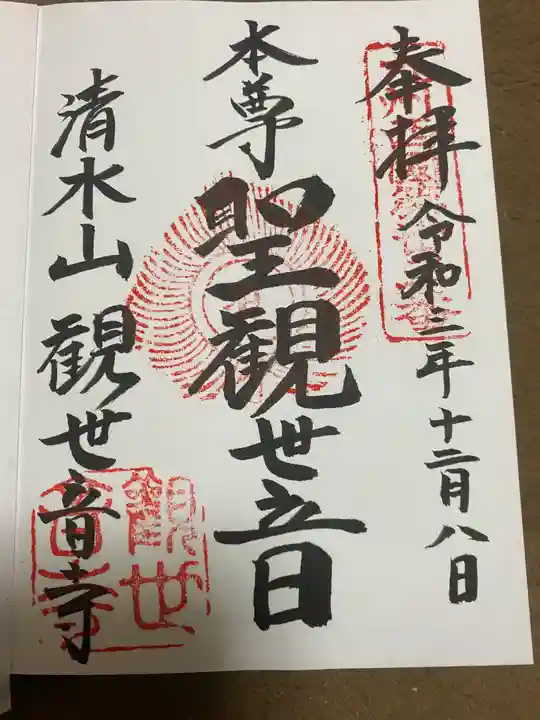 奉拝 令和三年十二月八日
本尊 聖観世音
清水山 観世音寺
観世音寺